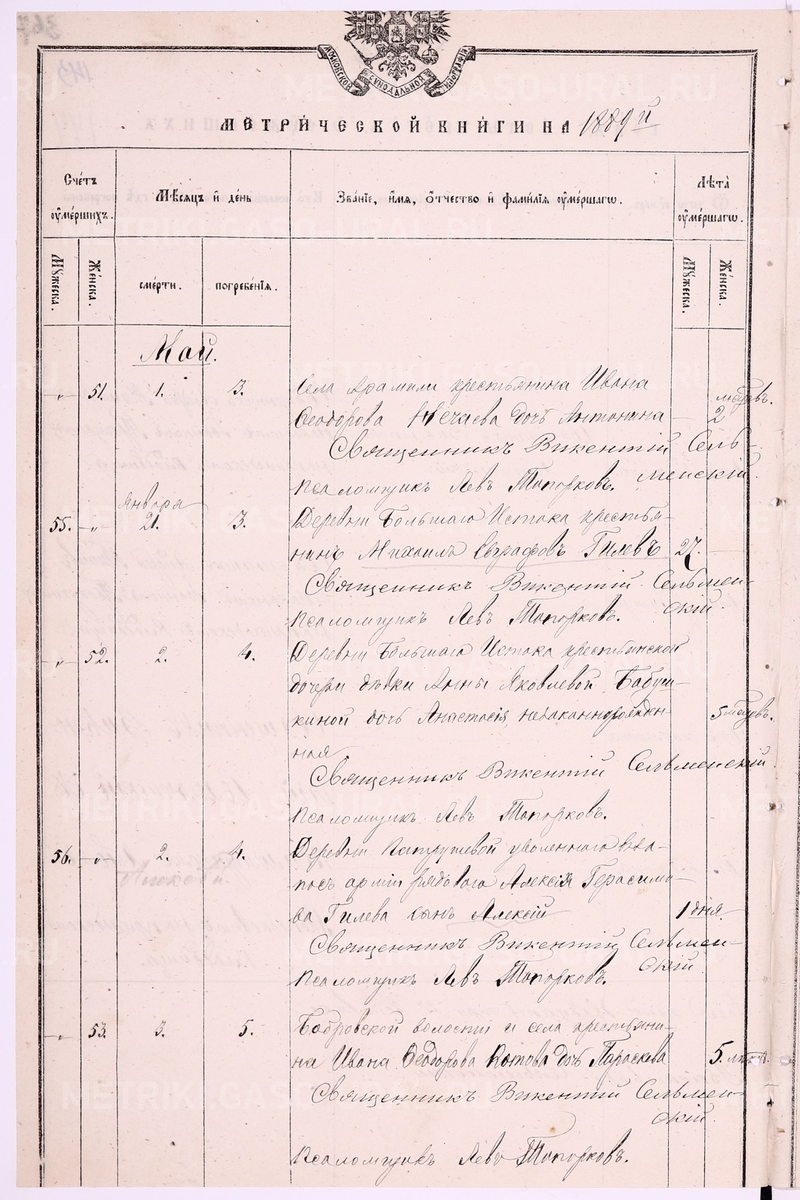 МОСКОВСКОЙ СѴНОДАЛЬНОЙ ТИПОГРАФІИ
МЕТРИ́ЧЕСКОЙ КНИ́ГИ НА 1889й
Счетъ ѹмершихъ.
Мѣсяцъ и день
Званіе, имя, отчество и фамилія ѹмершагѡ.
Лѣта ѹмершагѡ.
Мѹжеска.
Женска.
смерти.
погребенія.
Мѹжеска.
Женска.
Май.
" 51. 1. 3. Села Арамили крестьянина Ивана
Ѳеодорова Нечаева дочь Антонина 2 мѣсяцъ.
Священникъ Викентій Сель-
менскій.
Псаломщикъ Левъ Топорковъ.
Января
55. " 21. 3. Деревни Большаго Истока крестья-
нинъ Михаилъ Евграфовъ Гилевъ 27.
Священникъ Викентій Сельмен-
скій.
Псаломщикъ Левъ Топорковъ.
" 52. 2. 4. Деревни Большаго Истока крестьянской
дочери дѣвки Анны Яковлевой Бабуш-
киной дочь Анастасія незаконнорожден- 5 мѣсяцъ.
ная
Священникъ Викентій Сельменскій.
Псаломщикъ Левъ Топорковъ.
56. " 2. 4. Деревни уволеннаго въ за-
пасъ арміи рядоваго Алексѣя Герасимо-
ва Гилева сынъ Алексій 1 дня
Священникъ Викентій Сельмен-
скій
Псаломщикъ Левъ Топорковъ.
" 53. 3. 5. Бобровской волости и села крестьяни-
на Ивана Ѳеодорова Котова дочь Параскева 5. лѣтъ.
Священникъ Викентій Сельмен-
скій.
Псаломщикъ Левъ Топорковъ.